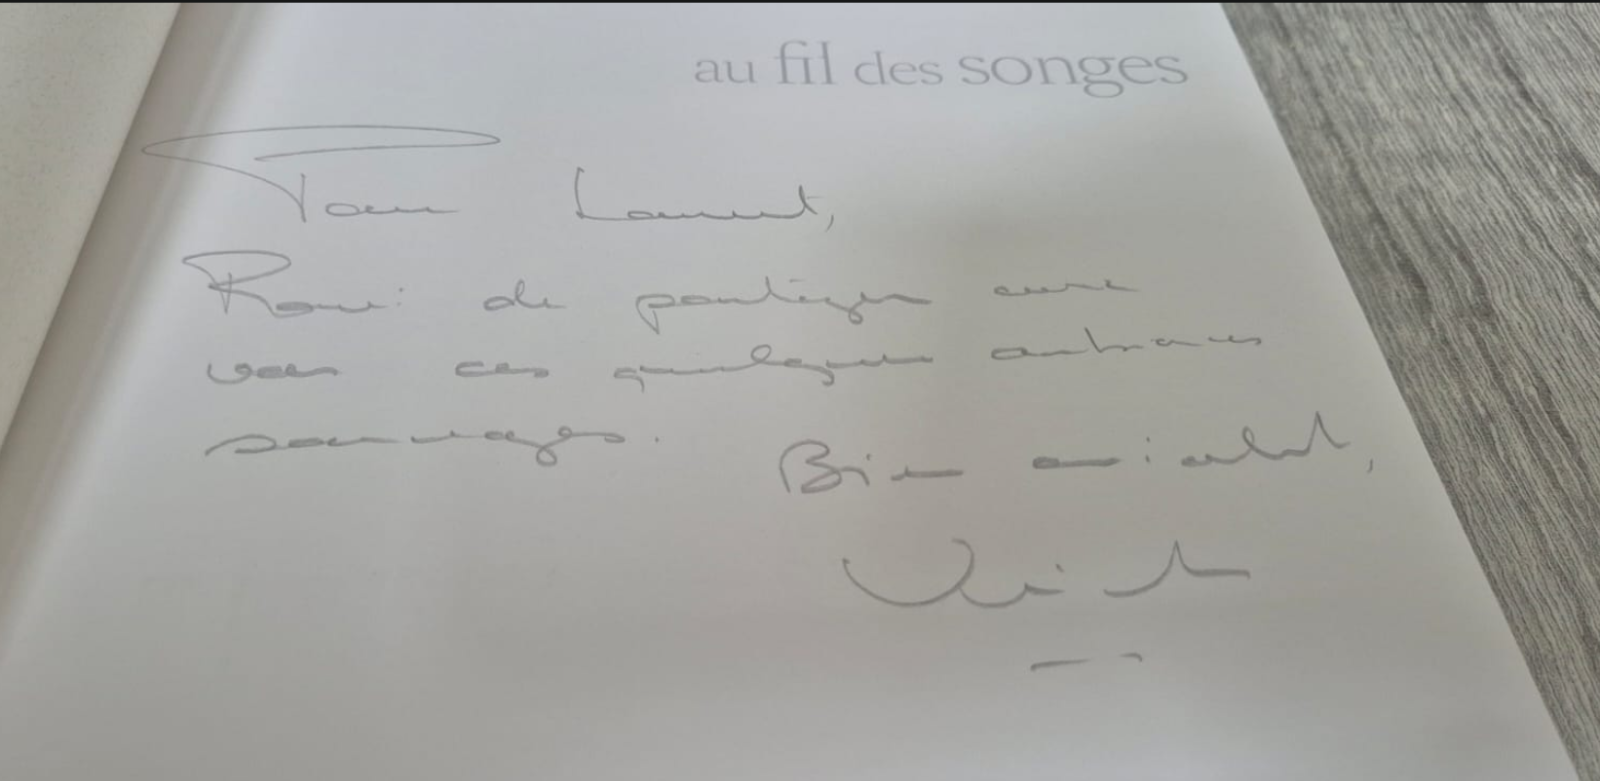 au fil des songes
Pour Laurent,
Ravi de partager avec
vous ces quelques ambiances
sauvages.
Bien amicalement,